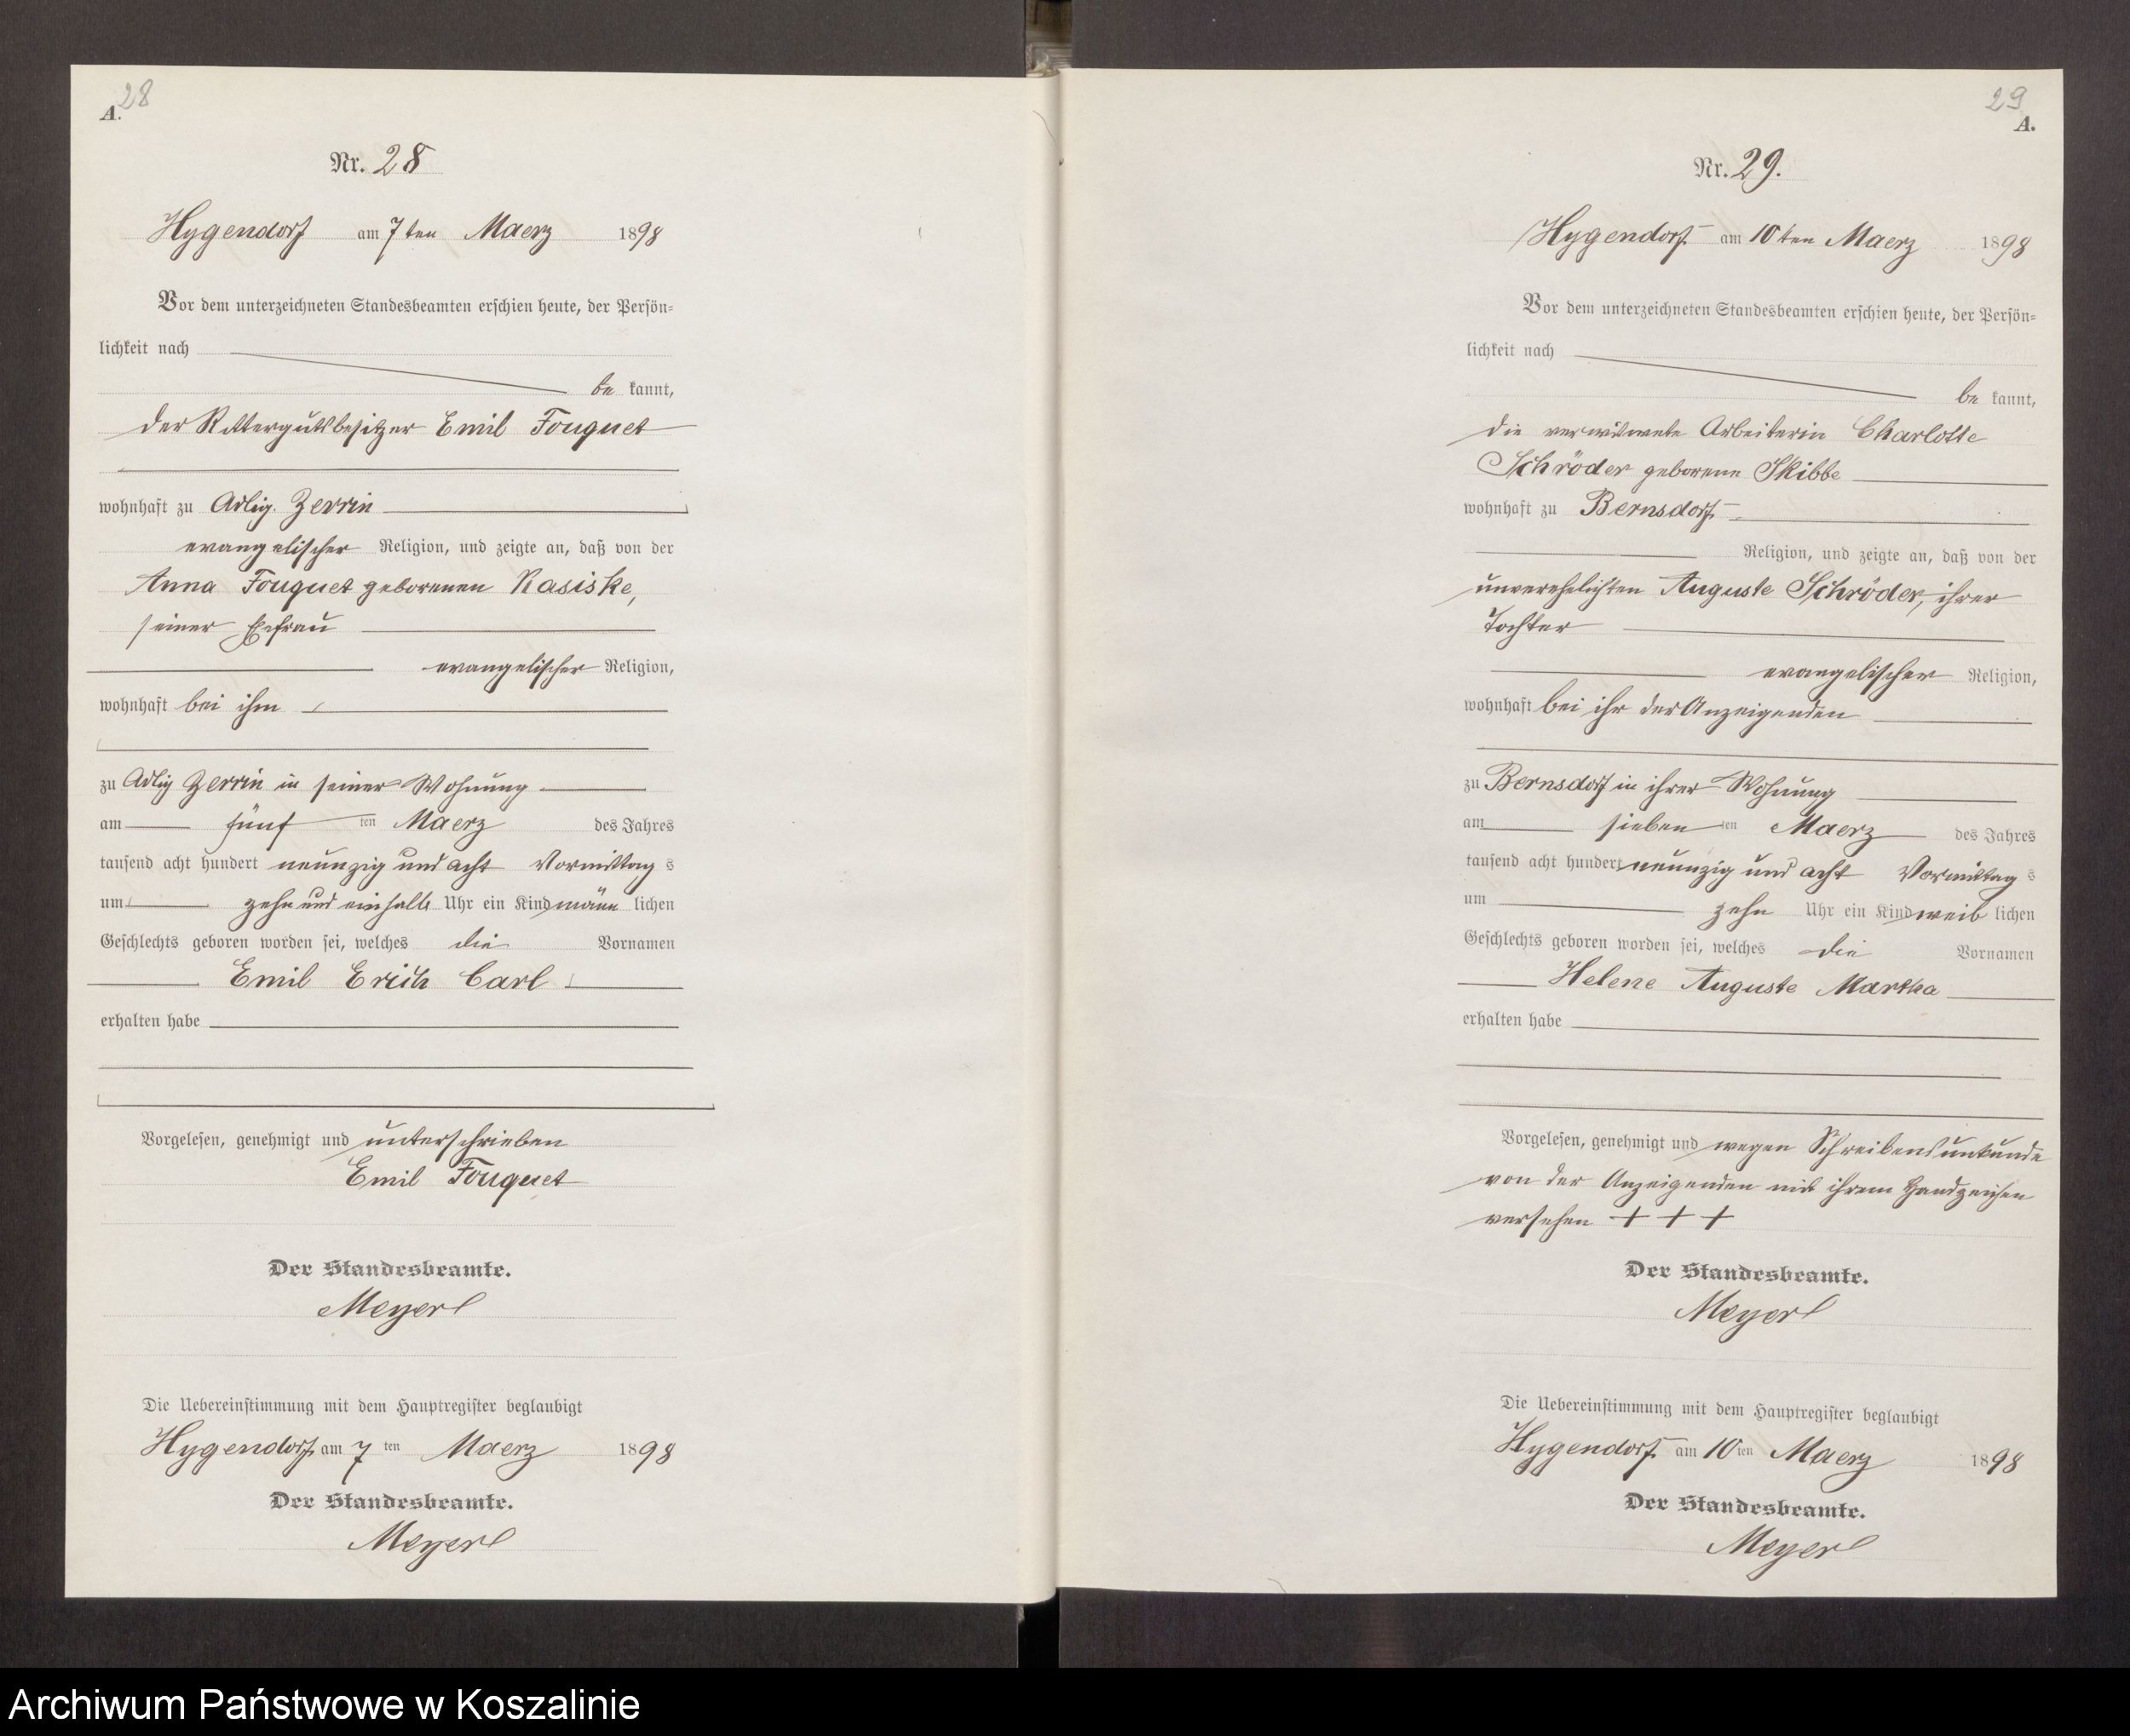 28
A.
Nr. 28
Hygendorf am 7ten Maerz 1898
Vor dem unterzeichneten Standesbeamten erschien heute, der Persön=
lichkeit nach
be kannt,
der Rittergutsbesitzer Emil Fouquet
wohnhaft zu Adlig. Zerrin
evangelischer Religion, und zeigte an, daß von der
Anna Fouquet geborenen Kasiske,
seiner Ehefrau
evangelischer Religion,
wohnhaft bei ihm
zu Adlig Zerrin in seiner Wohnung
am fünf ten Maerz des Jahres
tausend acht hundert neunzig und acht Vormittag s
um zehn und einhalb Uhr ein Kind männ lichen
Geschlechts geboren worden sei, welches die Vornamen
Emil Erich Carl
erhalten habe
Vorgelesen, genehmigt und unterschrieben
Emil Fouquet
Der Standesbeamte.
Meyerl
Die Uebereinstimmung mit dem Hauptregister beglaubigt
Hygendorf am 7 ten Maerz 1898
Der Standesbeamte.
Meyerl
29
A.
Nr. 29.
Hygendorf am 10ten Maerz 1898
Vor dem unterzeichneten Standesbeamten erschien heute, der Persön=
lichkeit nach
be kannt,
die verwitwete Arbeiterin Charlotte
Schröder geborene Skibbe
wohnhaft zu Bernsdorf
Religion, und zeigte an, daß von der
unverehelichten Auguste Schröder, ihrer
Tochter
evangelischer Religion,
wohnhaft bei ihr der Anzeigenden
zu Bernsdorf in ihrer Wohnung
am sieben ten Maerz des Jahres
tausend acht hundert neunzig und acht Vormittag s
um zehn Uhr ein Kind weib lichen
Geschlechts geboren worden sei, welches die Vornamen
Helene Auguste Martha
erhalten habe
Vorgelesen, genehmigt und wegen Schreibensunkunde
von der Anzeigenden mit ihrem Handzeichen
versehen + + +
Der Standesbeamte.
Meyerl
Die Uebereinstimmung mit dem Hauptregister beglaubigt
Hygendorf am 10 ten Maerz 1898
Der Standesbeamte.
Meyerl
Archiwum Państwowe w Koszalinie